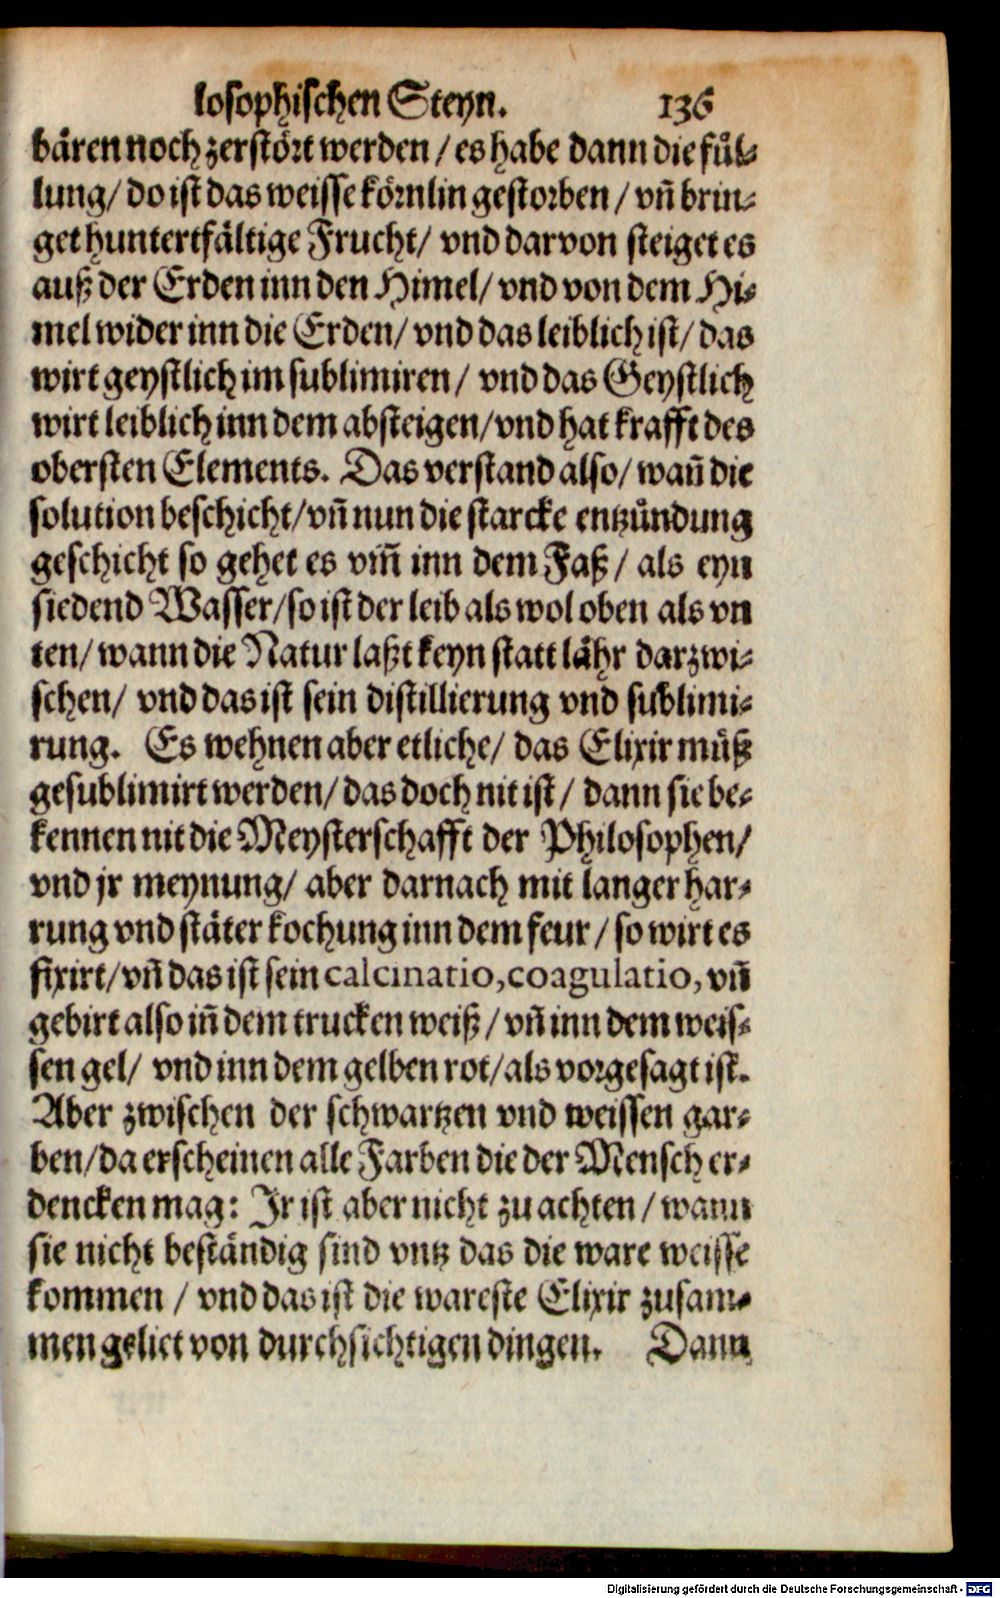 losophischen Steyn. 136
bären noch zerstört werden / es habe dann die fül-
lung / do ist das weisse körnlin gestorben / vñ brin-
get huntertfältige Frucht / vnd darvon steiget es
auß der Erden inn den Himel / vnd von dem Hi-
mel wider inn die Erden / vnd das leiblich ist / das
wirt geystlich im sublimiren / vnd das Geystlich
wirt leiblich inn dem absteigen / vnd hat krafft des
obersten Elements. Das verstand also / wañ die
solution beschicht / vñ nun die starcke entzündung
geschicht so gehet es vm̃ inn dem Faß / als eyn
siedend Wasser / so ist der leib als wol oben als vn
ten / wann die Natur laßt keyn statt lähr darzwi-
schen / vnd das ist sein distillierung vnd sublimi-
rung. Es wehnen aber etliche / das Elixir müß
gesublimirt werden / das doch nit ist / dann sie be-
kennen nit die Meysterschafft der Philosophen /
vnd jr meynung / aber darnach mit langer har-
rung vnd stäter kochung inn dem feur / so wirt es
fixirt / vñ das ist sein calcinatio, coagulatio, vñ
gebirt also iñ dem trucken weiß / vñ inn dem weis-
sen gel / vnd inn dem gelben rot / als vorgesagt ist.
Aber zwischen der schwartzen vnd weissen gar-
ben / da erscheinen alle Farben die der Mensch er-
dencken mag: Jr ist aber nicht zu achten / wann
sie nicht beständig sind vntz das die ware weisse
kommen / vnd das ist die wareste Elixir zusam-
men geliet von durchsichtigen dingen. Dann
Digitalisierung gefördert durch die Deutsche Forschungsgemeinschaft - DFG